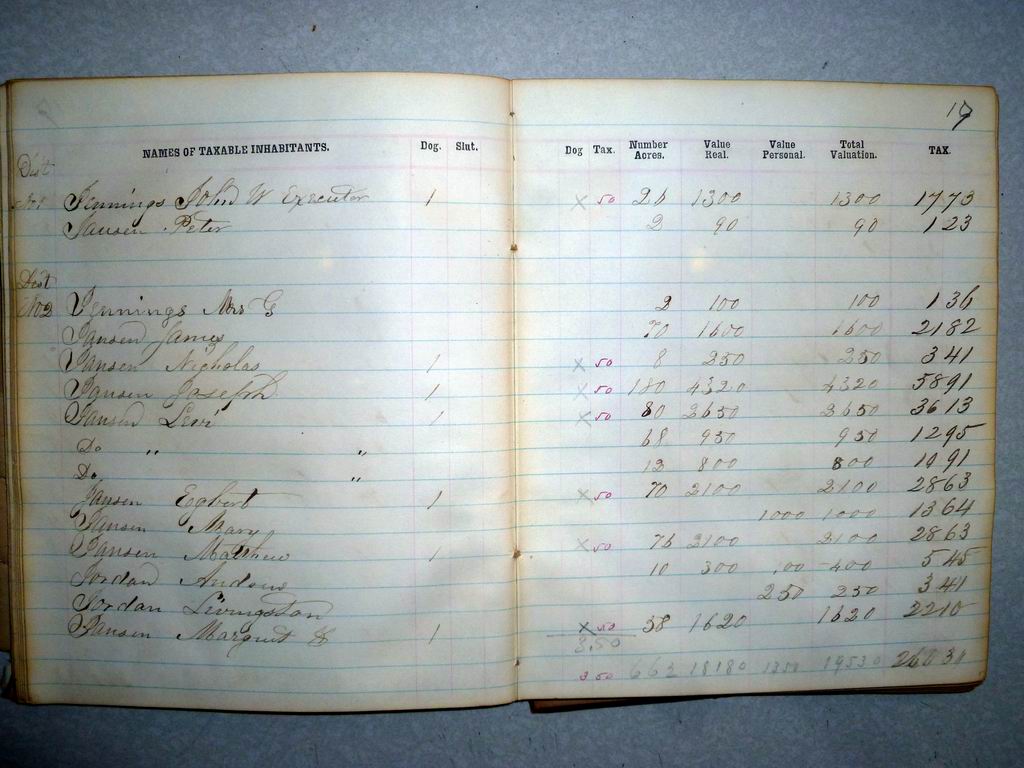 19
NAMES OF TAXABLE INHABITANTS. Dog. Slut. Dog Tax. Number Acres. Value Real. Value Personal. Total Valuation. TAX.
Dist
No 1 Jennings John W Executor 1 X 50 26 1300 1300 17 73
Jansen Peter 2 90 90 1 23
Dist
No 2 Jennings Mrs G 2 100 100 1 36
Jansen James 70 1600 1600 21 82
Jansen Nicholas 1 X 50 8 250 250 3 41
Jansen Joseph 1 X 50 180 4320 4320 58 91
Jansen Levi 1 X 50 80 2650 2650 36 13
Do " " 68 950 950 12 95
Do " 12 800 800 10 91
Jansen Egbert 1 X 50 70 2100 2100 28 63
Jansen Mary 1000 1000 13 64
Jansen Matthew 1 X 50 76 2100 2100 28 63
Jordan Andrew 10 300 100 400 5 45
Jordan Livingston 250 250 3 41
Jansen Margaret 1 X 50 58 1620 1620 22 10
3.50
3 50 662 18180 1350 19530